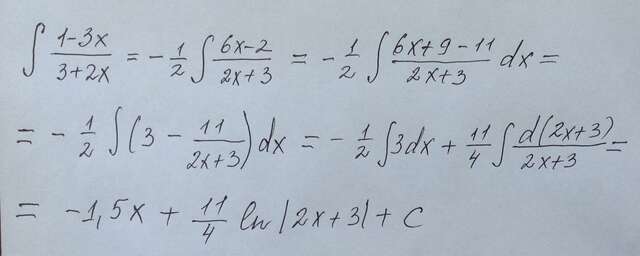 ∫ (1-3x)/(3+2x) = -1/2 ∫ (6x-2)/(2x+3) = -1/2 ∫ (6x+9-11)/(2x+3) dx =
= -1/2 ∫ (3 - 11/(2x+3)) dx = -1/2 ∫ 3dx + 11/4 ∫ d(2x+3)/(2x+3) =
= -1,5x + 11/4 ln |2x+3| + C